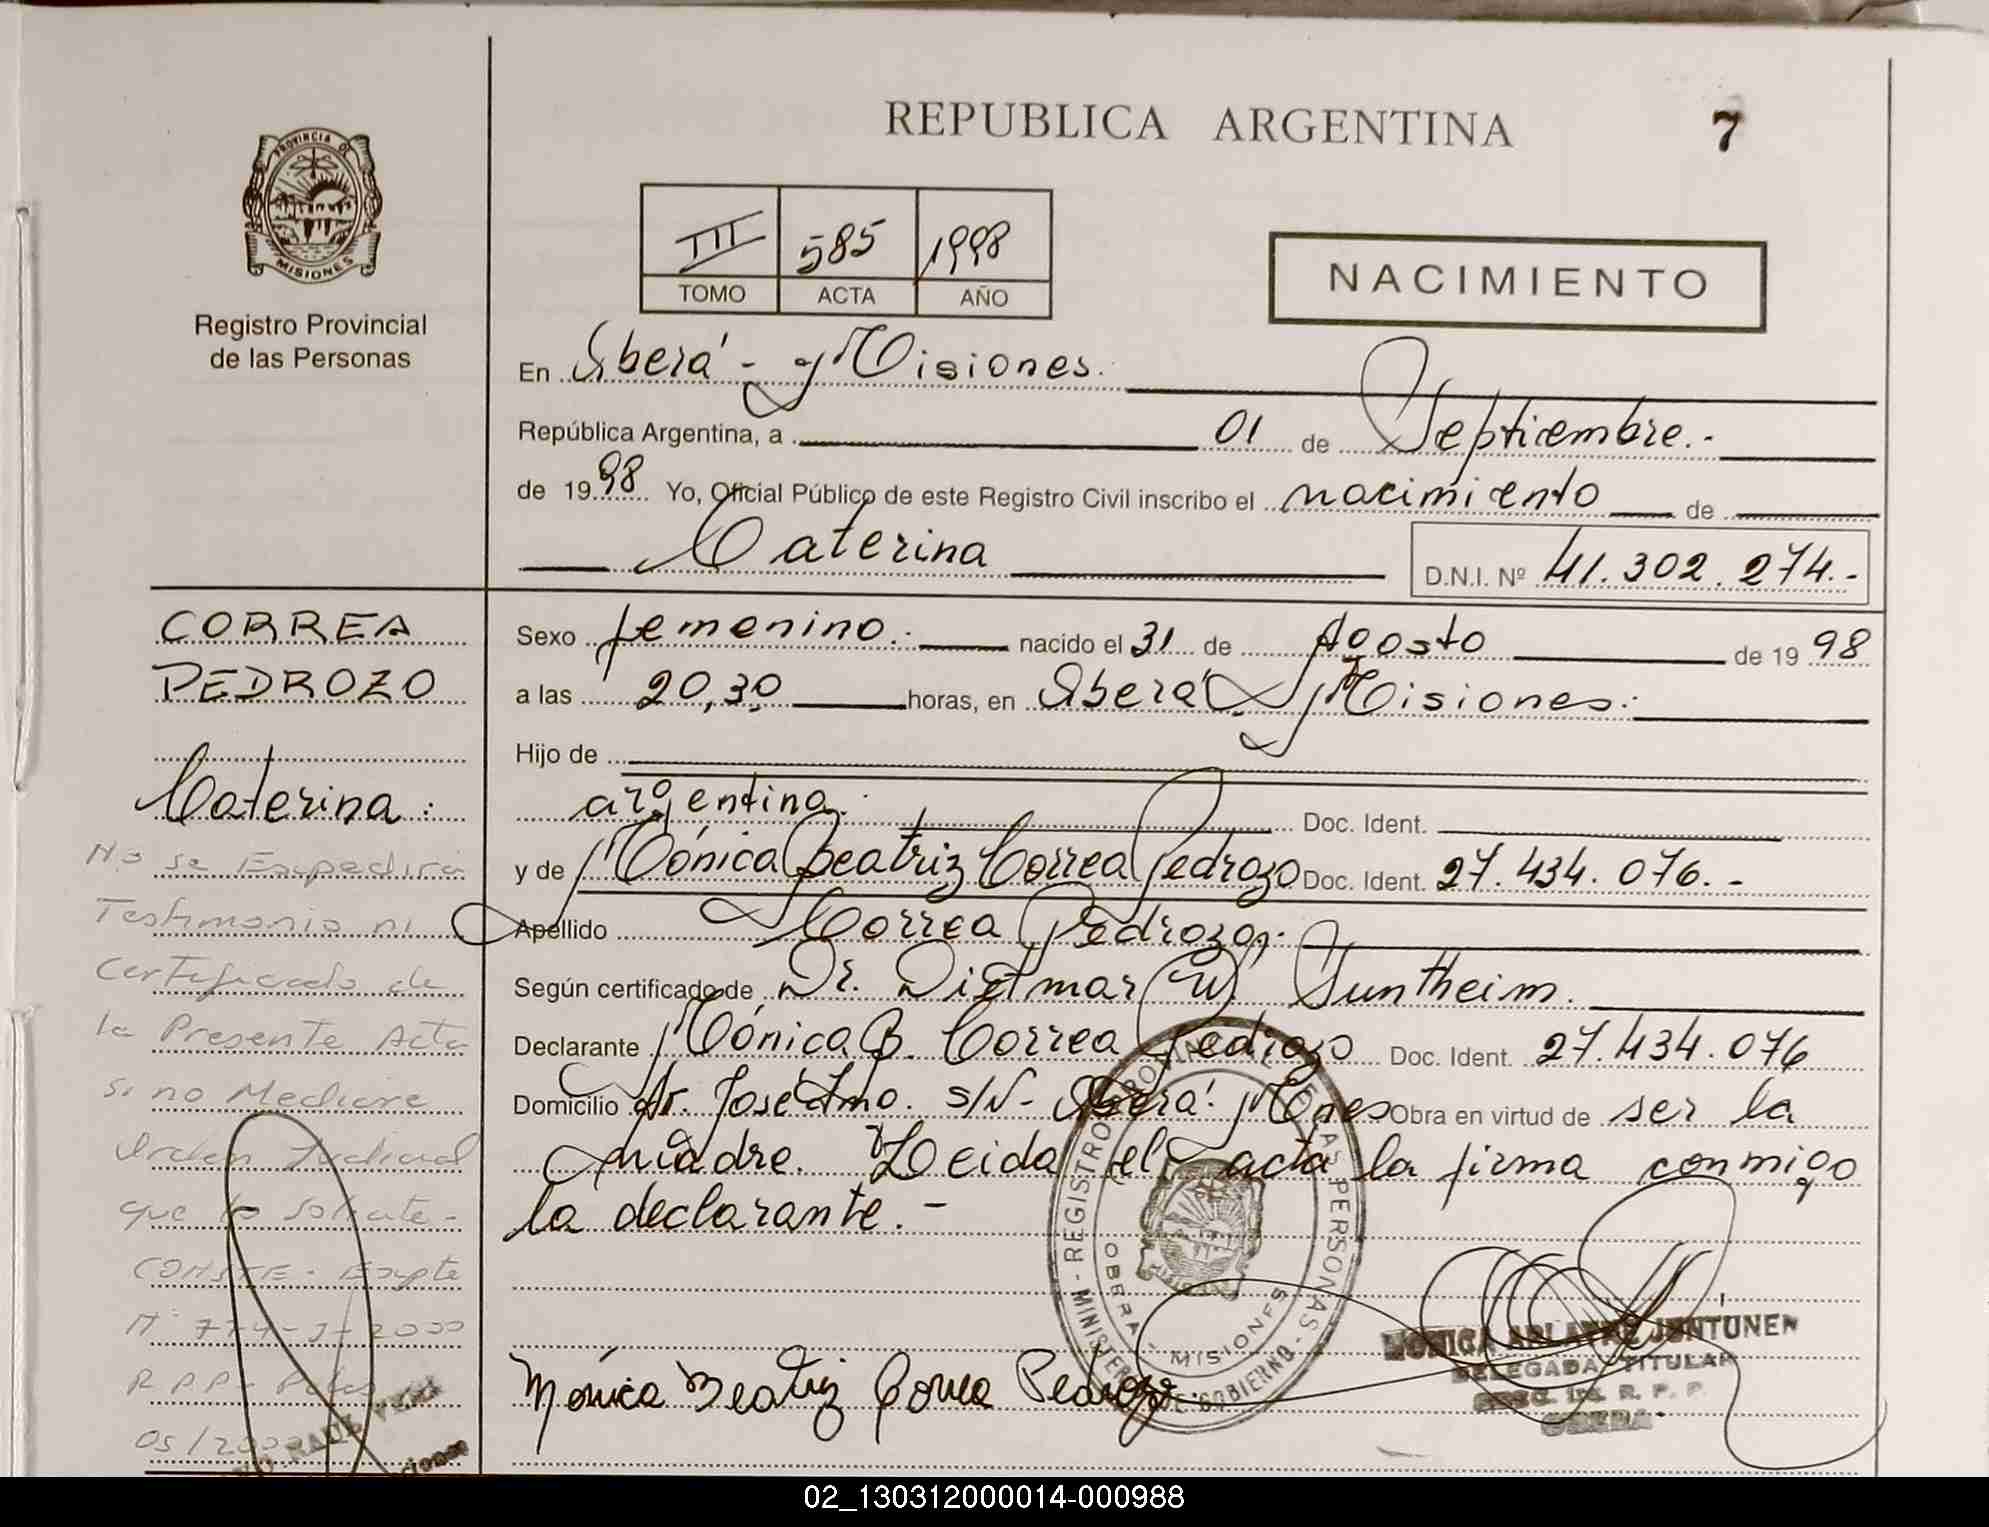 REPUBLICA ARGENTINA
7
PROVINCIA DE
MISIONES
Registro Provincial
de las Personas
III 585 1998
TOMO ACTA AÑO
NACIMIENTO
En Oberá - Misiones.
República Argentina, a 01 de Septiembre.-
de 1998 Yo, Oficial Público de este Registro Civil inscribo el nacimiento de
Caterina
D.N.I. Nº 41.302.274.-
CORREA
PEDROZO
Caterina:
No se Expedirá
Testimonio ni
Certificado de
la Presente Acta
si no Mediare
Orden Judicial
que lo solicite-
CONSTE- Expte
Nº 774-J-2000
R.P.P- Pdas
05/2000
RAUL
Sexo femenino.- nacido el 31 de Agosto de 1998
a las 20,30 horas, en Oberá Misiones:
Hijo de
argentina. Doc. Ident.
y de Mónica Beatriz Correa Pedrozo Doc. Ident. 27.434.076.-
Apellido Correa Pedrozo.-
Según certificado de Dr. Dietmar W. Suntheim.
Declarante Mónica B. Correa Pedrozo Doc. Ident. 27.434.076
Domicilio S/N- Oberá. Mnes Obra en virtud de ser la
madre. Leida el acta la firma conmigo
la declarante.-
REGISTRO PROVINCIAL DE LAS PERSONAS - MINISTERIO DE GOBIERNO -
OBERA MISIONES
Mónica Beatriz Correa Pedrozo
MONICA JUNTUNEN
DELEGADA TITULAR
R. P. P.
OBERA
02_130312000014-000988